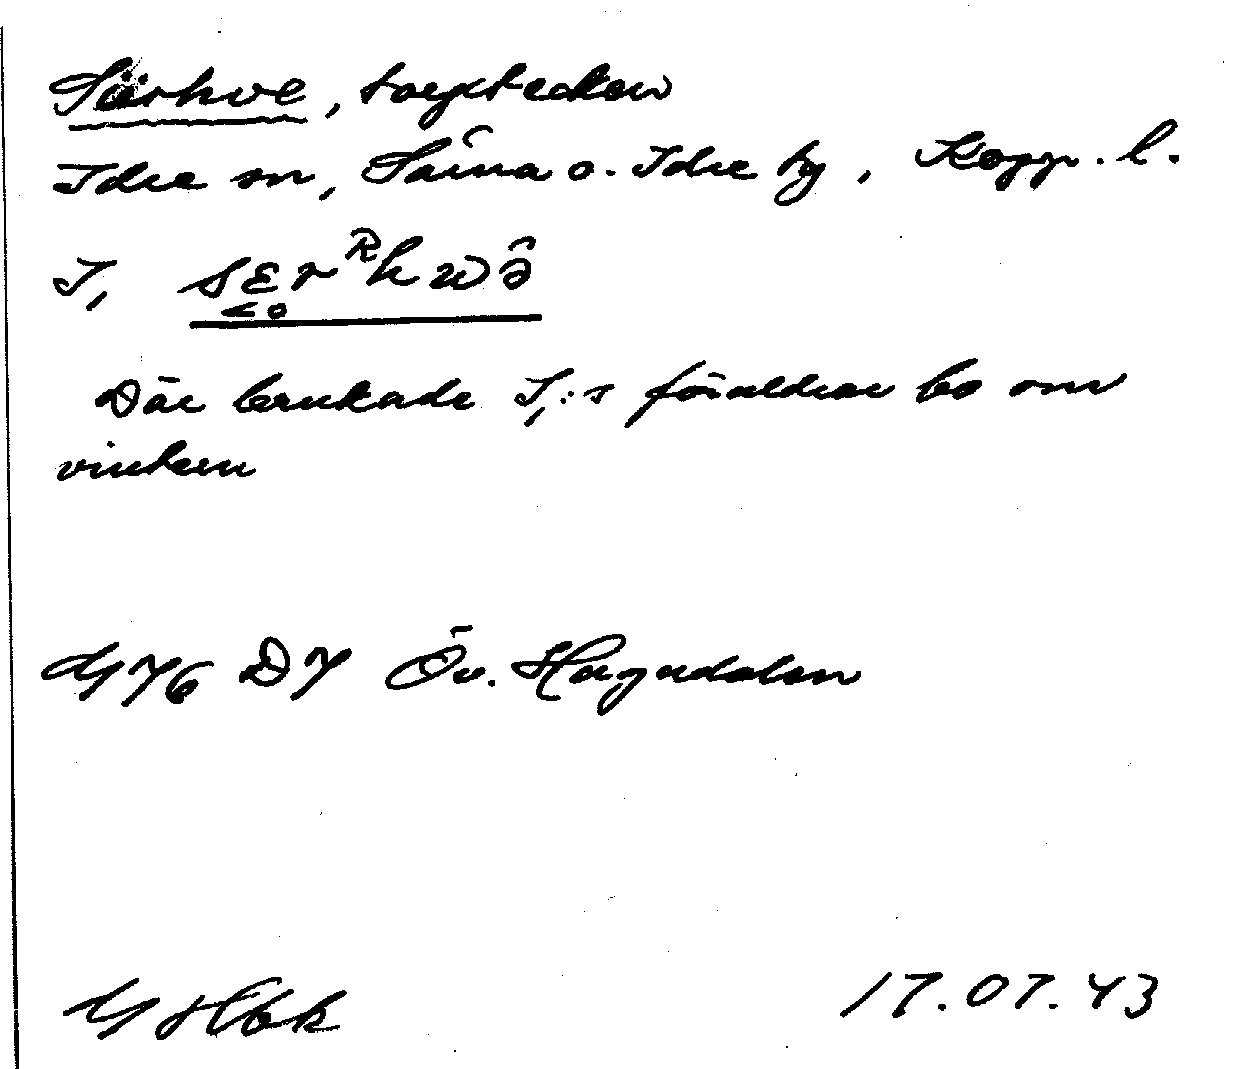 Särhve, torptecken
Idre sn, Särna o. Idre tg, Kopp. l.
I,
Där brukade I,:s föräldrar bo om
vintern
476 D7 Öv. Hagadalen
17.07.43